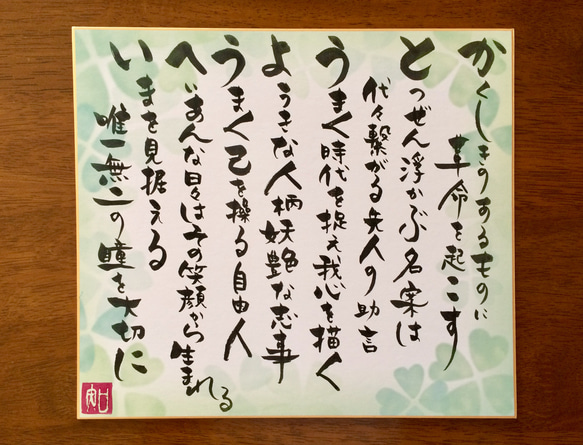 かくしきのあるものに
革命を起こす
とつぜん浮かぶ名案は
代々繋がる先人の助言
うまく時代を捉え我心を描く
ようきな人柄妖艶豊な志事
うまく己を操る自由人
へいあんな日々はその笑顔から生まれる
いまを見据える
唯一無二の瞳を大切に